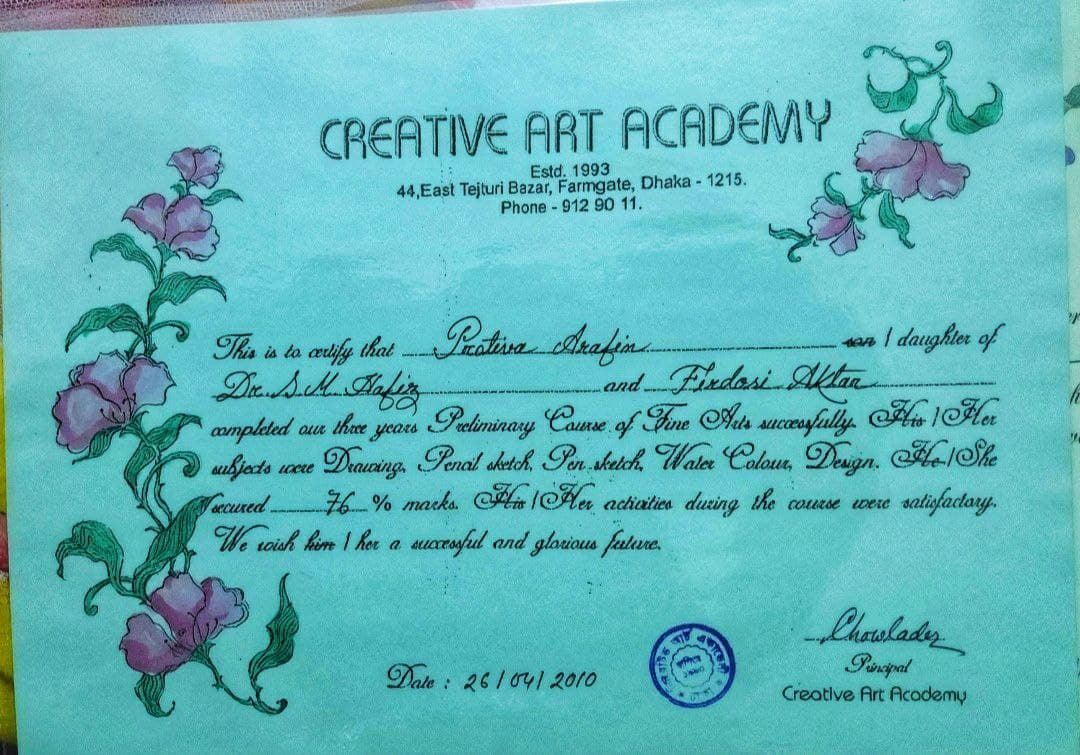 CREATIVE ART ACADEMY
Estd. 1993
44,East Tejturi Bazar, Farmgate, Dhaka - 1215.
Phone - 912 90 11.
This is to certify that Protiva Arafin son / daughter of
Dr. S. M. Hafiz and Firdosi Aktar
completed our three years Preliminary Course of Fine Arts successfully. His / Her
subjects were Drawing, Pencil sketch, Pen sketch, Water Colour, Design. He / She
secured 76 % marks. His / Her activities during the course were satisfactory.
We wish him / her a successful and glorious future.
Chowlader
Principal
Date : 26/04/2010
Creative Art Academy